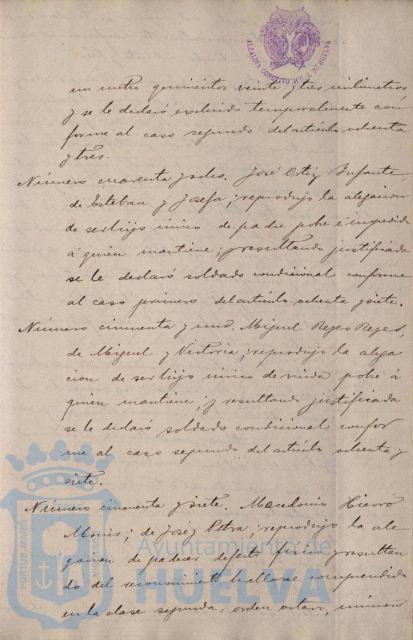 ALCALDIA CONSTITUCIONAL DE HUELVA
un metro quinientos veinte y tres milimetros
y se le declaró excluido temporalmente con
forme al caso segundo del artículo ochenta
y tres.
Número cuarenta y ocho. José Ortiz Infante
de Esteban y Josefa; reprodujo la alegacion
de ser hijo único de padre pobre é impedido
á quien mantiene; y resultando justificada
se le declaró soldado condicional conforme
al caso primero del artículo ochenta y siete.
Número cincuenta y uno. Miguel Reyes Reyes,
de Miguel y Victoria; reprodujo la alega
cion de ser hijo único de viuda pobre á
quien mantiene; y resultando justificada
se le declaró soldado condicional confor
me al caso segundo del artículo ochenta y
siete.
Número cincuenta y siete. Macedonio Hierro
de José y Petra; reprodujo la ale
gacion de padecer defecto fisico y resultan
do del reconocimiento hallarse comprendido
en la clase segunda, orden octavo, número
PORTUS MARIS
Ayuntamiento de
HUELVA